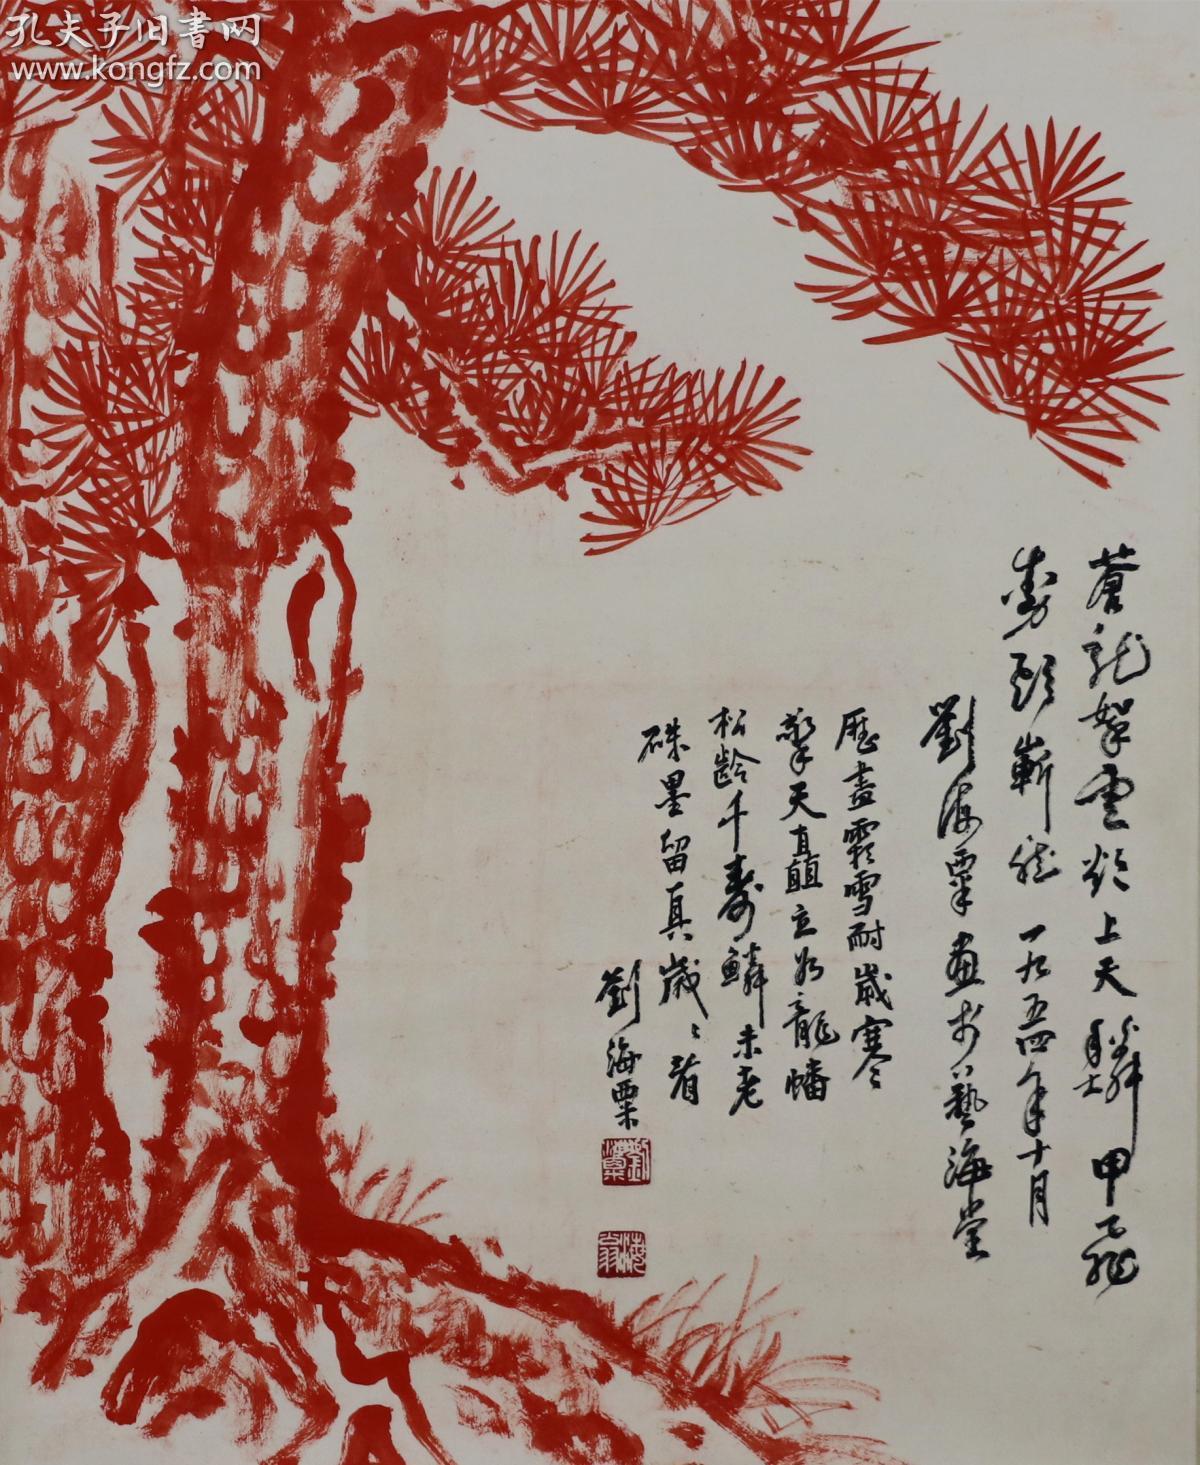 孔夫子旧书网
www.kongfz.com
蒼龍挐雲欲上天鱗甲飛
動頭嶄然一九五四年十月
劉海粟畫於藝海堂
歷盡霜雪耐歲寒
擎天矗立如龍幡
松齡千壽鱗未老
硃墨留真歲〻看
劉海粟
海翁